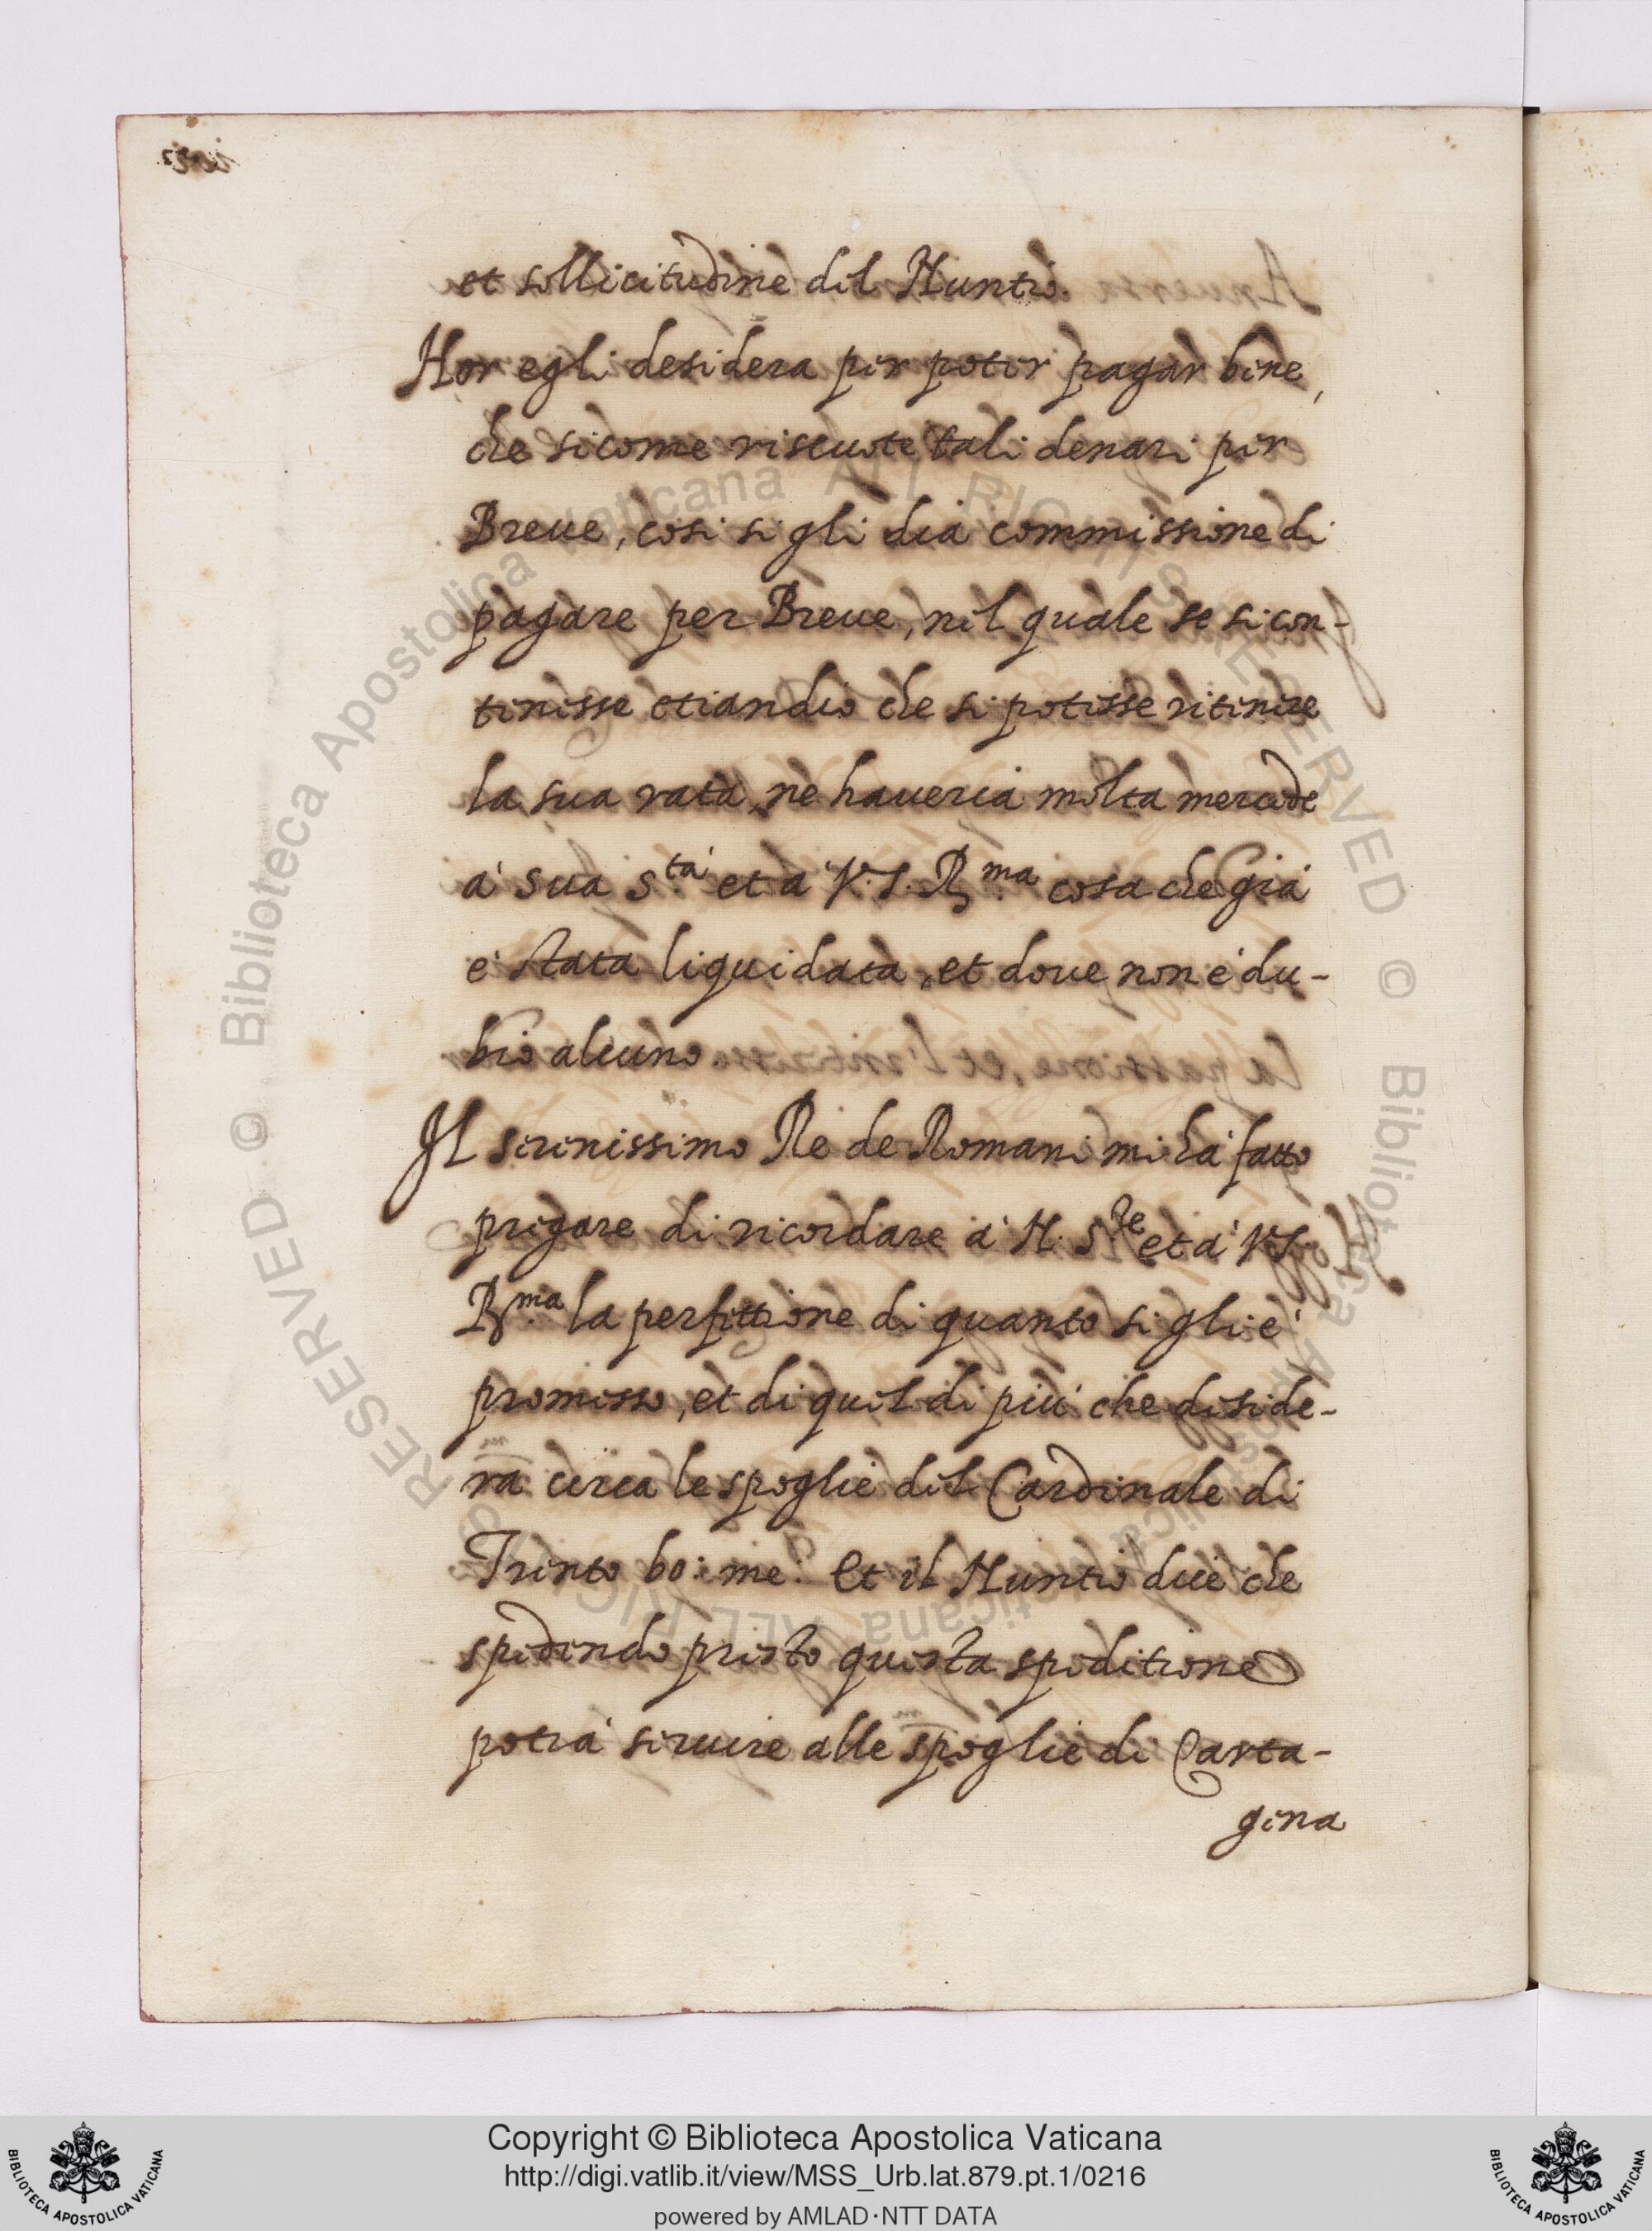 et sollicitudine del Nuntio.
Hor egli desidera per poter pagar bene,
che sicome riscuote tali denari per
Breue, cosi si gli dia commissione di
pagare per Breue, nel quale se si con-
tenesse etiandio che si potesse ritenere
la sua rata, ne haueria molta mercede
a' sua S.tà et a' V.S. R.ma cosa che già
e' stata liquidata, et doue non e' du-
bio alcuno.
Il serenissimo Re de Romani mi hà fatto
pregare di ricordare à N. S.re et à V.S.
R.ma la perfettione di quanto si gli e'
promesso, et di quel di più che deside-
ra circa le spoglie del Cardinale di
Trento bo: me: Et il Nuntio dice che
spedendo presto questa speditione
potrà seruire alle spoglie di Carta-
gena
Copyright © Biblioteca Apostolica Vaticana
http://digi.vatlib.it/view/MSS_Urb.lat.879.pt.1/0216
powered by AMLAD·NTT DATA
BIBLIOTECA APOSTOLICA VATICANA
BIBLIOTECA APOSTOLICA VATICANA
© Biblioteca Apostolica Vaticana ALL RIGHTS RESERVED
© Biblioteca Apostolica Vaticana ALL RIGHTS RESERVED